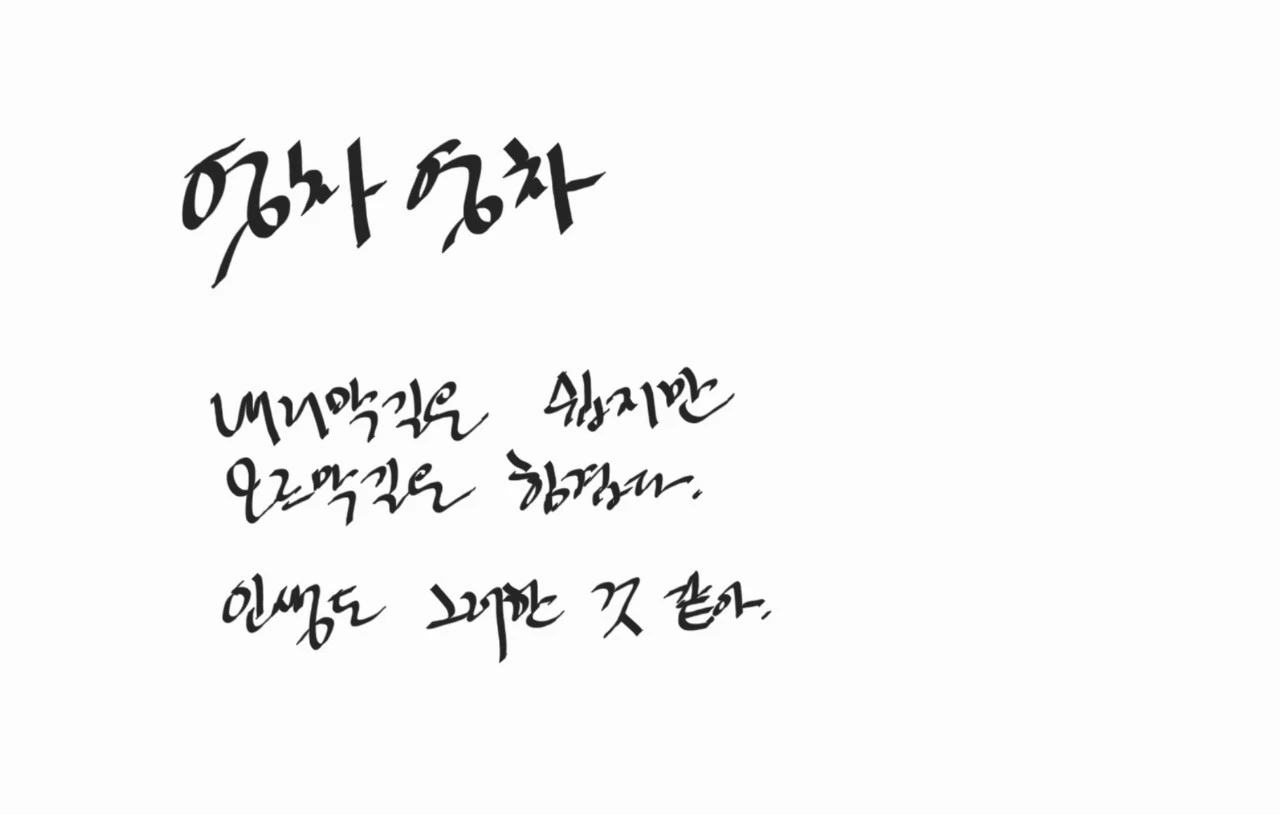 영차 영차
내리막길은 쉽지만
오르막길은 힘겹다.
인생도 그러한 것 같아.